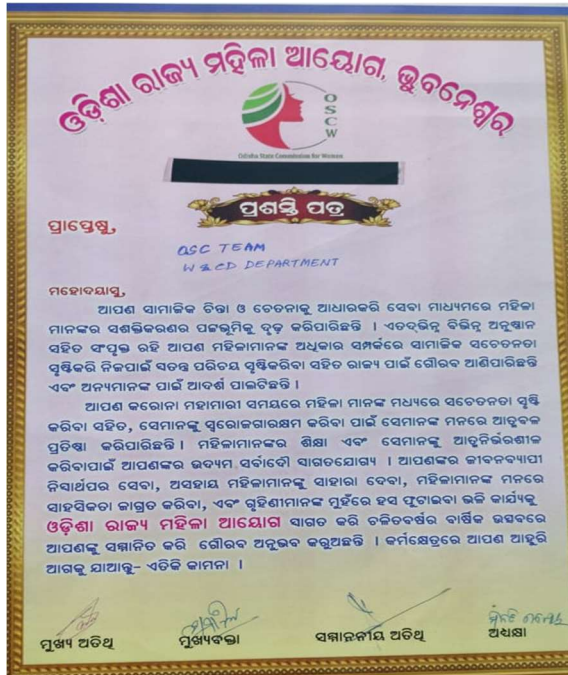 ଓଡ଼ିଶା ରାଜ୍ୟ ମହିଳା ଆୟୋଗ, ଭୁବନେଶ୍ୱର
OSCW
Odisha State Commission for Women
ପ୍ରଶସ୍ତି ପତ୍ର
ପ୍ରାପ୍ତେଷୁ,
OSC TEAM
W & CD DEPARTMENT
ମହୋଦୟାସୁ,
ଆପଣ ସାମାଜିକ ଚିନ୍ତା ଓ ଚେତନାକୁ ଆଧାରକରି ସେବା ମାଧ୍ୟମରେ ମହିଳା
ମାନଙ୍କର ସଶକ୍ତିକରଣର ପଟ୍ଟଭୂମିକୁ ଦୃଢ଼ କରିପାରିଛନ୍ତି । ଏତଦ୍‌ଭିନ୍ନ ବିଭିନ୍ନ ଅନୁଷ୍ଠାନ
ସହିତ ସଂପୃକ୍ତ ରହି ଆପଣ ମହିଳାମାନଙ୍କ ଅଧିକାର ସମ୍ପର୍କରେ ସାମାଜିକ ସଚେତନତା
ସୃଷ୍ଟିକରି ନିଜପାଇଁ ସତନ୍ତ ପରିଚୟ ସୃଷ୍ଟିକରିବା ସହିତ ରାଜ୍ୟ ପାଇଁ ଗୌରବ ଆଣିପାରିଛନ୍ତି
ଏବଂ ଅନ୍ୟମାନଙ୍କ ପାଇଁ ଆଦର୍ଶ ପାଲଟିଛନ୍ତି ।
ଆପଣ କରୋନା ମହାମାରୀ ସମୟରେ ମହିଳା ମାନଙ୍କ ମଧ୍ୟରେ ସଚେତନତା ସୃଷ୍ଟି
କରିବା ସହିତ, ସେମାନଙ୍କୁ ସ୍ୱରୋଜଗାରକ୍ଷମ କରିବା ପାଇଁ ସେମାନଙ୍କ ମନରେ ଆତ୍ମବଳ
ପ୍ରତିଷ୍ଠା କରିପାରିଛନ୍ତି । ମହିଳାମାନଙ୍କର ଶିକ୍ଷା ଏବଂ ସେମାନଙ୍କୁ ଆତ୍ମନିର୍ଭରଶୀଳ
କରିବାପାଇଁ ଆପଣଙ୍କର ଉଦ୍ୟମ ସର୍ବାଦୌ ସ୍ୱାଗତଯୋଗ୍ୟ । ଆପଣଙ୍କର ଜୀବନବ୍ୟାପୀ
ନିସ୍ୱାର୍ଥପର ସେବା, ଅସହାୟ ମହିଳାମାନଙ୍କୁ ସାହାରା ଦେବା, ମହିଳାମାନଙ୍କ ମନରେ
ସାହସିକତା ଜାଗ୍ରତ କରିବା, ଏବଂ ଗୃହିଣୀମାନଙ୍କ ମୁହଁରେ ହସ ଫୁଟାଇବା ଭଳି କାର୍ଯ୍ୟକୁ
ଓଡ଼ିଶା ରାଜ୍ୟ ମହିଳା ଆୟୋଗ ସ୍ୱାଗତ କରି ଚଳିତବର୍ଷର ବାର୍ଷିକ ଉତ୍ସବରେ
ଆପଣଙ୍କୁ ସମ୍ମାନିତ କରି ଗୌରବ ଅନୁଭବ କରୁଅଛନ୍ତି । କର୍ମକ୍ଷେତ୍ରରେ ଆପଣ ଆହୁରି
ଆଗକୁ ଯାଆନ୍ତୁ- ଏତିକି କାମନା ।
ମୁଖ୍ୟ ଅତିଥି ମୁଖ୍ୟବକ୍ତା ସମ୍ମାନନୀୟ ଅତିଥି ଅଧ୍ୟକ୍ଷା